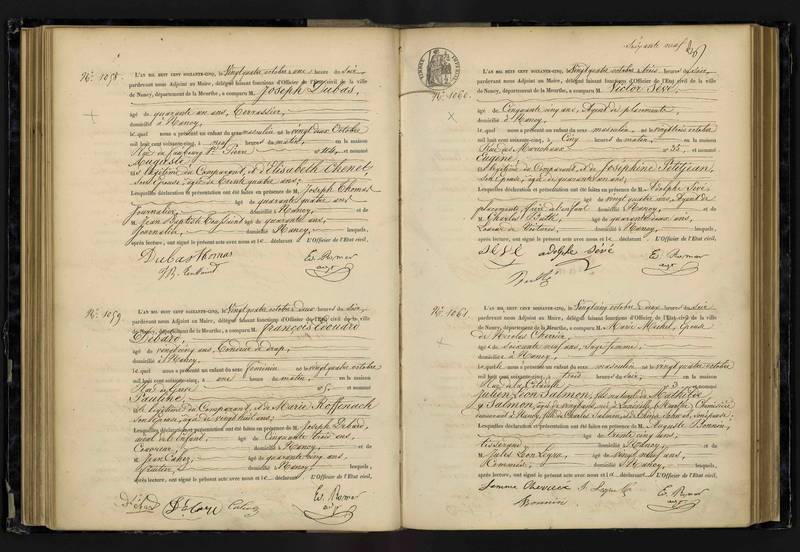 No. 1058.
L'AN MIL HUIT CENT SOIXANTE-CINQ, le vingt quatre octobre à onze heures du
pardevant nous Adjoint au Maire, délégué faisant fonctions d'Officier de l'État civil de la ville
de Nancy, département de la Meurthe, a comparu M. Joseph Dubas,
âgé de quarante un ans, Terrassier,
domicilié à Nancy,
lequel nous a présenté un enfant du sexe masculin né le vingt deux octobre
mil huit cent soixante-cinq, à neuf heures du matin, en la maison
Rue du faubourg St Pierre et nommé
Auguste
légitime du Comparant, et d'Elisabeth Chenot,
son Epouse, âgée de trente quatre ans;
Lesquelles déclaration et présentation ont été faites en présence de M. Joseph Thomas
Journalier, âgé de quarante quatre ans,
domicilié à Nancy, et de
M. Jean Baptiste âgé de quarante ans,
Journalier, domicilié à Nancy, lesquels,
après lecture, ont signé le présent acte avec nous et le déclarant. L'Officier de l'État civil,
Dubas Thomas
No. 1059.
L'AN MIL HUIT CENT SOIXANTE-CINQ, le vingt quatre octobre à deux heures du soir,
pardevant nous Adjoint au Maire, délégué faisant fonctions d'Officier de l'État civil de la ville
de Nancy, département de la Meurthe, a comparu M. François Edouard
Debard,
âgé de vingt cinq ans, Tondeur de drap,
domicilié à Nancy,
lequel nous a présenté un enfant du sexe féminin né le vingt quatre octobre
mil huit cent soixante-cinq, à une heure du matin, en la maison
Rue de n° 5. et nommé
Pauline,
légitime du Comparant, et de Marie Koffenach
son Epouse, âgée de vingt huit ans;
Lesquelles déclaration et présentation ont été faites en présence de M. Joseph Debard,
aïeul de l'Enfant, âgé de Cinquante trois ans,
domicilié à Nancy, et de
M. Jean âgé de quarante cinq ans,
domicilié à Nancy, lesquels,
après lecture, ont signé le présent acte avec nous et le déclarant. L'Officier de l'État civil,
Soixante neuf
No. 1060.
L'AN MIL HUIT CENT SOIXANTE-CINQ, le vingt quatre octobre à trois heures du soir,
pardevant nous Adjoint au Maire, délégué faisant fonctions d'Officier de l'État civil de la ville
de Nancy, département de la Meurthe, a comparu M. Victor Sévé,
âgé de Cinquante cinq ans, Agent de placements,
domicilié à Nancy,
lequel nous a présenté un enfant du sexe masculin né le vingt trois octobre
mil huit cent soixante-cinq, à Cinq heures du matin, en la maison
Rue des Maréchaux n° 35. et nommé
Eugène
légitime du Comparant, et de Joséphine Petitjean,
son Epouse, âgée de quarante un ans,
Lesquelles déclaration et présentation ont été faites en présence de M. Adolphe Sévé
âgé de vingt quatre ans, Agent de
placements, frère de l'enfant domicilié à Nancy, et de
M. Charles âgé de quarante deux ans,
domicilié à Nancy, lesquels,
après lecture, ont signé le présent acte avec nous et le déclarant. L'Officier de l'État civil,
SÉVÉ adolphe Sévé
No. 1061.
L'AN MIL HUIT CENT SOIXANTE-CINQ, le vingt cinq octobre à deux heures du soir
pardevant nous Adjoint au Maire, délégué faisant fonctions d'Officier de l'État civil de la ville
de Nancy, département de la Meurthe, a comparu M. Marie Michel, Epouse
de Nicolas
âgée de soixante neuf ans, Sage femme,
domiciliée à Nancy,
laquelle nous a présenté un enfant du sexe masculin né le vingt quatre octobre
mil huit cent soixante-cinq, à trois heures du soir, en la maison
Rue de la Citadelle n° 3. et nommé
Julien Léon Salmon, fils naturel de Mathilde
Salmon,
Lesquelles déclaration et présentation ont été faites en présence de M. Auguste
âgé de trente cinq ans,
domicilié à Nancy, et de
M. Jules Léon âgé de vingt neuf ans,
domicilié à Nancy, lesquels,
après lecture, ont signé le présent acte avec nous et le déclarant. L'Officier de l'État civil,